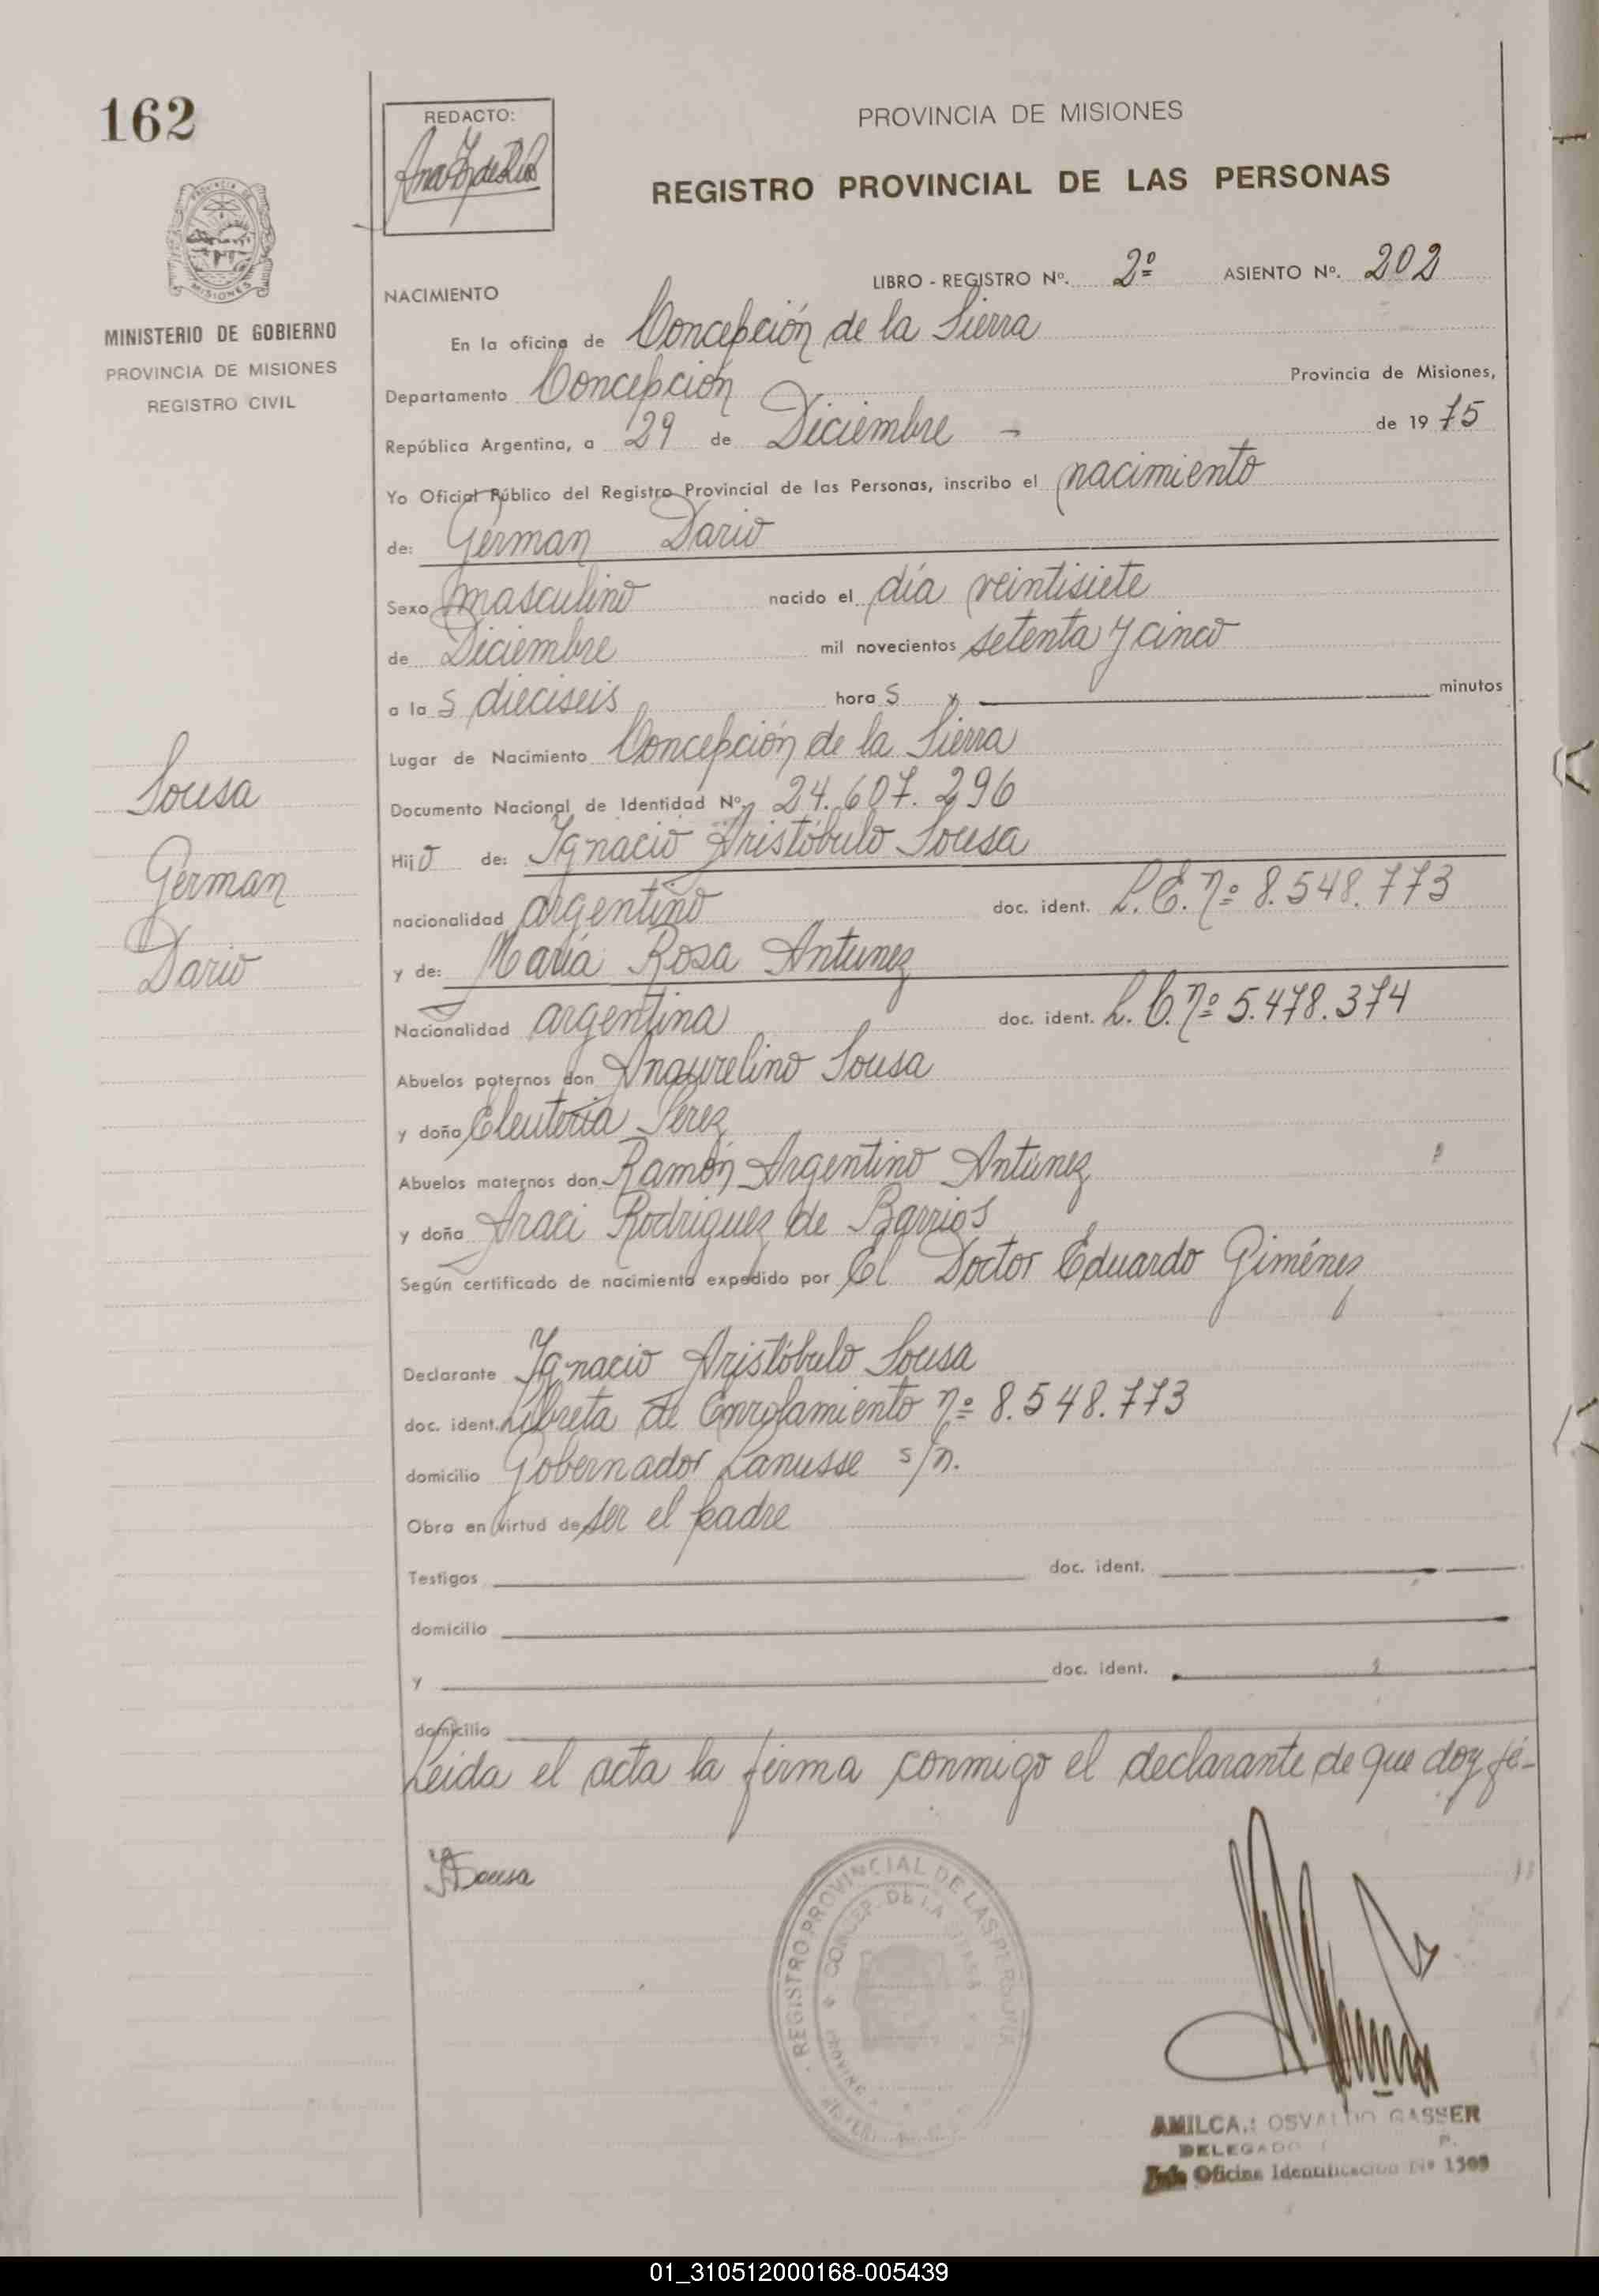 162
REDACTO:
PROVINCIA DE MISIONES
REGISTRO PROVINCIAL DE LAS PERSONAS
LIBRO - REGISTRO Nº. 2º ASIENTO Nº. 202
NACIMIENTO
MINISTERIO DE GOBIERNO
PROVINCIA DE MISIONES
REGISTRO CIVIL
En la oficina de Concepción de la Sierra
Departamento Concepción Provincia de Misiones,
República Argentina, a 29 de Diciembre - de 1975
Yo Oficial Público del Registro Provincial de las Personas, inscribo el nacimiento
de: Germán Dario
Sexo masculino nacido el día veintisiete
de Diciembre mil novecientos setenta y cinco
a las dieciseis horas y minutos
Lugar de Nacimiento Concepción de la Sierra
Documento Nacional de Identidad Nº 24.607.296
Hijo de: Ignacio Aristóbulo Sousa
nacionalidad argentino doc. ident. L.E. nº 8.548.773
y de: María Rosa Antunez
Nacionalidad argentina doc. ident. L.C. nº 5.478.374
Abuelos paternos don Anaurelino Sousa
y doña Eleuteria Perez
Abuelos maternos don Ramón Argentino Antunez
y doña Araci Rodriguez de Barrios
Según certificado de nacimiento expedido por El Doctor Eduardo Giménez
Declarante Ignacio Aristóbulo Sousa
doc. ident. Libreta de Enrolamiento nº 8.548.773
domicilio Gobernador Lanusse s/n.
Obra en virtud de ser el padre
Testigos doc. ident.
domicilio
y doc. ident.
domicilio
Leida el acta la firma conmigo el declarante de que doy fé-
Sousa
German
Dario
Sousa
REGISTRO PROVINCIAL DE LAS PERSONAS
CONCEP. DE LA SIERRA
OSVALDO GASSER
DELEGADO
Oficina Identificación Nº 1509
01_310512000168-005439